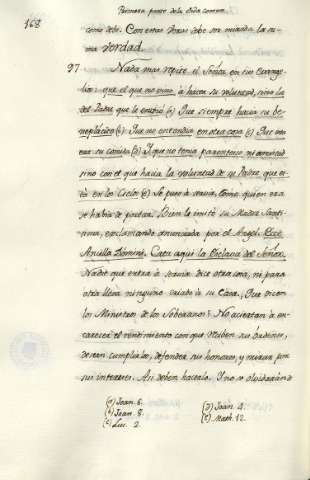 168
Primera parte de la vida comun
como debe. Con estas voces debe ser mirada la su-
ma verdad.
97. Nada mas repite el Señor en su Evange-
lio: que el que no vino a hacer su voluntad, sino la
del Padre que le envió (a) Que siempre hacia su be-
neplácito (b) Que no entendia en otra cosa (c) Que esta
era su comida (d) I que no tenia parentesco ni amistad
sino con el que hacia la voluntad de su Padre, que es-
tá en los Cielos (e) Se puso a servir, como quien era
se habia de preciar. Bien le imitó su Madre Santi-
sima, exclamando anunciada por el Angel. Ecce
Ancilla Domini. Cata aqui la Esclava del Señor.
Nadie que entra a servir dice otra cosa, ni para
otra lleva ninguno criado a su Casa. Que dicen
los Ministros de los Soberanos? No aciertan a en-
carecer el rendimiento con que reciben sus ordenes,
desean cumplirlas, defender sus honores, y mirar por
sus intereses. Asi deben hacerlo. I no se olvidarán
(a) Joan. 6.
(b) Joan. 8.
(c) Luc. 2
(d) Joan. 4.
(e) Math. 12.